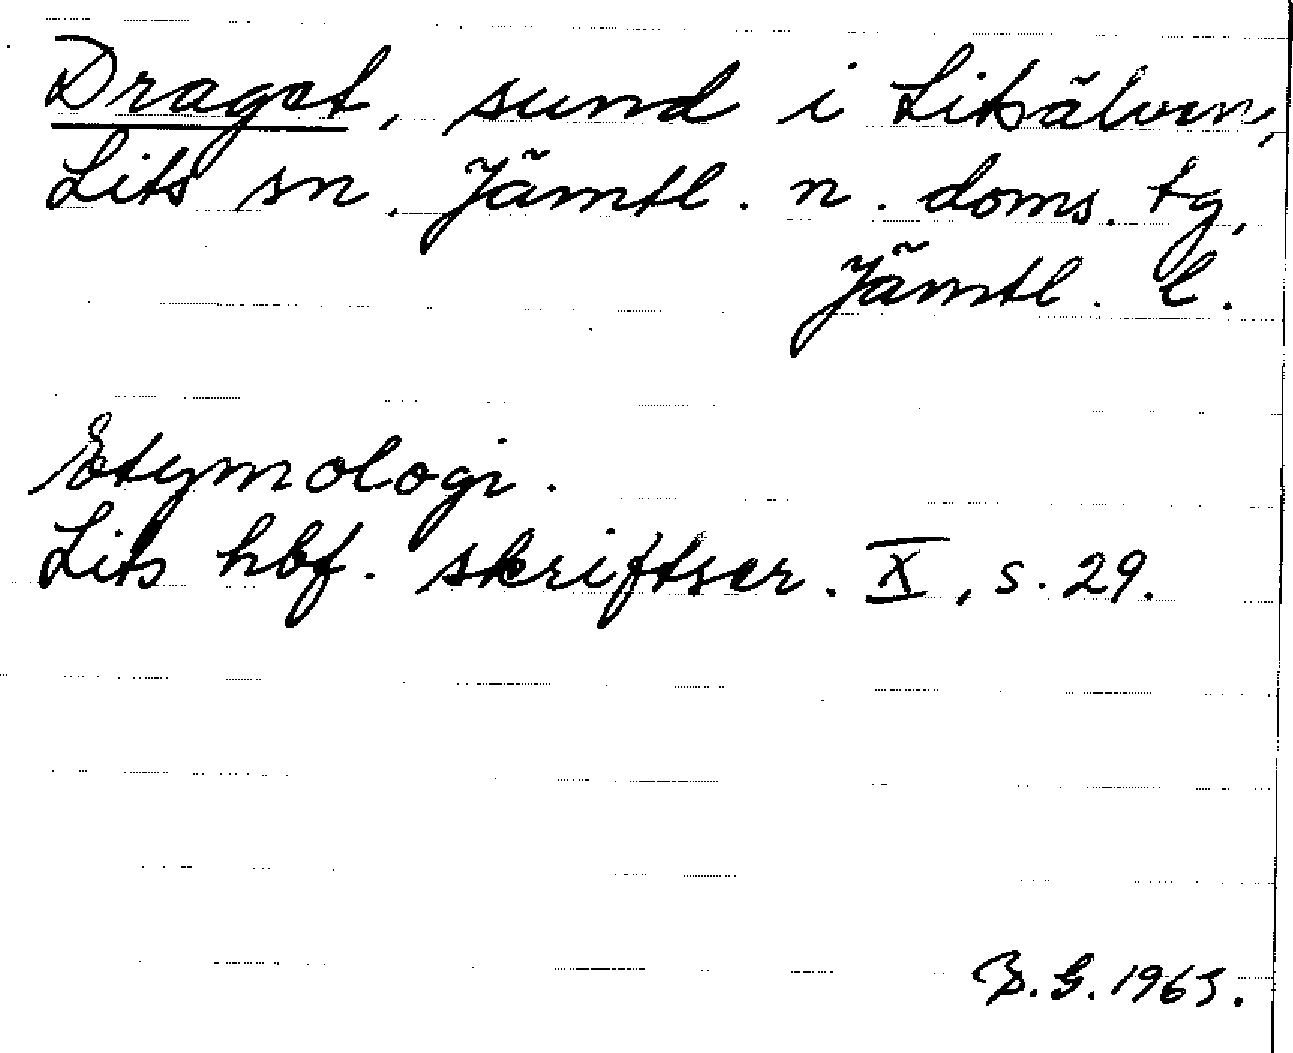 Draget, sund i Litsälven,
Lits sn. Jämtl. n. doms. tg,
Jämtl. l.
Etymologi.
Lits hbf. skriftser. X, s. 29.
B. G. 1965.